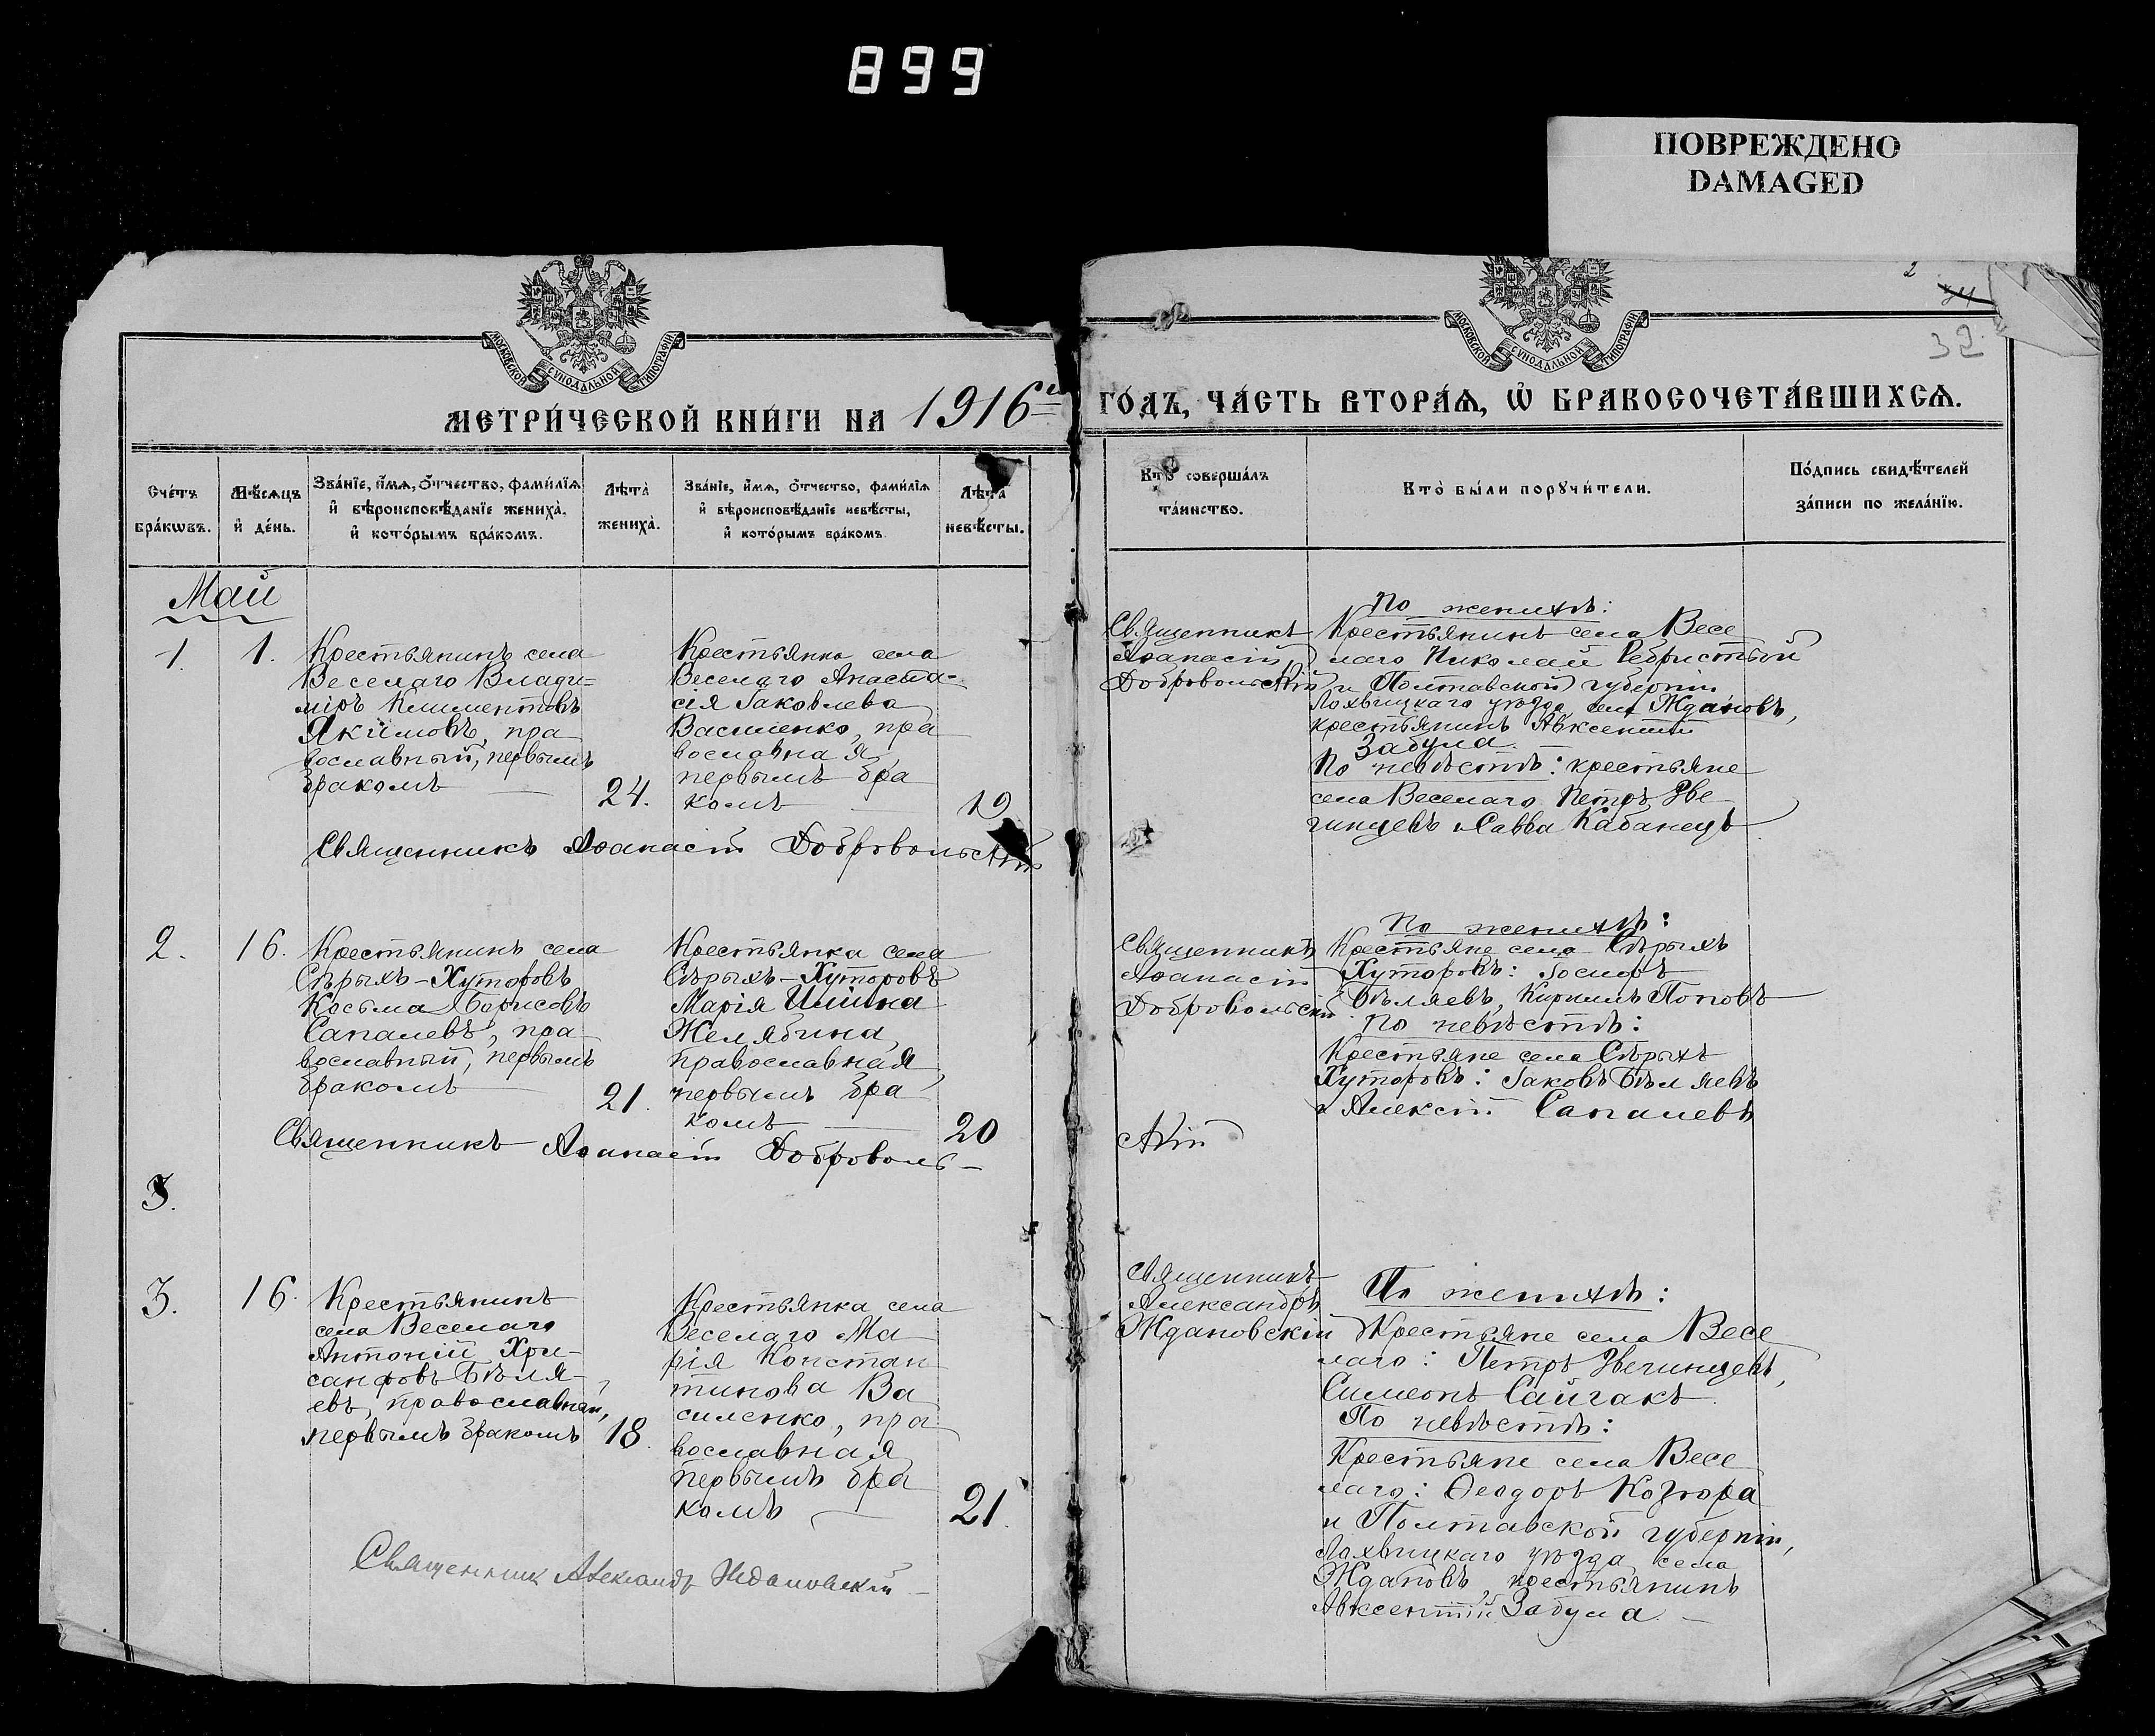 899
ПОВРЕЖДЕНО
DAMAGED
МОСКОВСКОЙ СѴНОДАЛЬНОЙ ТИПОГРАФІИ
МОСКОВСКОЙ СѴНОДАЛЬНОЙ ТИПОГРАФІИ
2
32
МЕТРИ́ЧЕСКОЙ КНИ́ГИ НА 1916й ГО́ДЪ, ЧА́СТЬ ВТОРА́Ѧ, Ѡ҆ БРАКОСОЧЕТА́ВШИХСѦ.
Сче́тъ
бра́кѡвъ.
Мѣ́сѧцъ
и҆ де́нь.
Зва́нїе, и҆́мѧ, о҆́тчество, фами́лїѧ
и҆ вѣроисповѣ́данїе жениха̀,
и҆ кото́рымъ бра́комъ.
Лѣта̀
жениха̀.
Зва́нїе, и҆́мѧ, о҆́тчество, фами́лїѧ
и҆ вѣроисповѣ́данїе невѣ́сты,
и҆ кото́рымъ бра́комъ.
Лѣта̀
невѣ́сты.
Кто̀ соверша́лъ
та́инство.
Кто̀ бы́ли порꙋчи́тели.
По́дпись свидѣ́телей
за́писи по жела́нїю.
Май
1.
1.
Крестьянинъ села
Веселаго Влади=
міръ Климентовъ
Якимовъ, пра
вославный, первымъ
бракомъ
24.
Крестьянка села
Веселаго Анаста-
сія Іаковлева
Василенко, пра
вославная,
первымъ бра
комъ
19
Священникъ
Аѳанасій
Добровольскій
По женихѣ:
Крестьянинъ села Весе
лаго Николай Ребристый
и Полтавской губерніи
Лохвицкаго уѣзда села Ждановъ,
крестьянинъ Авксентій
Забула.
По невѣстѣ: крестьяне
села Веселаго Петръ Зве
гинцевъ и Савва Кабанецъ
Священникъ Аѳанасій Добровольскій
2.
16.
Крестьянинъ села
Сѣрыхъ-Хуторовъ
Косьма Борисовъ
Сапалевъ, пра
вославный, первымъ
бракомъ
21.
Крестьянка села
Сѣрыхъ-Хуторовъ
Марія Илiина
Желябина,
православная,
первымъ бра
комъ
20
Священникъ
Аѳанасій
Добровольскій
По женихѣ:
Крестьяне села Сѣрыхъ
Хуторовъ: Іосифъ
Бѣляевъ, Кириллъ Поповъ
По невѣстѣ:
Крестьяне села Сѣрыхъ
Хуторовъ: Іаковъ Бѣляевъ
и Алексій Сапалевъ
Священникъ Аѳанасій Доброволь-
скій
3.
3.
16.
Крестьянинъ
села Веселаго
Антоній Хри-
санфовъ Бѣля-
евъ, православный,
первымъ бракомъ
18.
Крестьянка села
Веселаго Ма
рія Констан
тинова Ва
силенко, пра
вославная
первымъ бра
комъ
21.
Священникъ
Александръ
Ждановскій
По женихѣ:
Крестьяне села Весе
лаго: Петръ Звегинцевъ,
Симеонъ Сайгакъ.
По невѣстѣ:
Крестьяне села Весе
лаго: Ѳеодоръ Козюра
и Полтавской губерніи,
Лохвицкаго уѣзда, села
Ждановъ, крестьянинъ
Авксентій Забула.
Священникъ Александръ Ждановскій